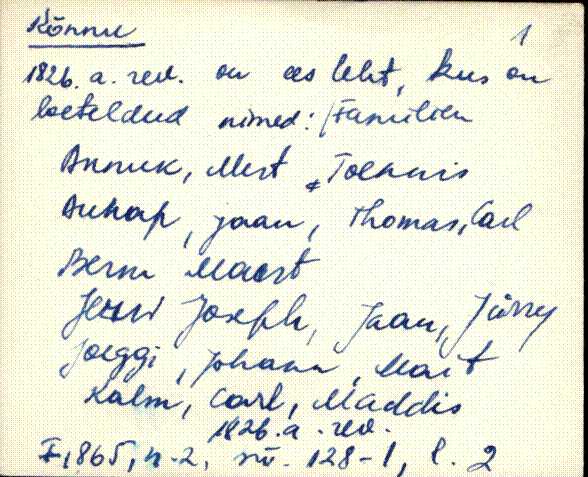 Kõnnu
1
1826. a. rev. on ees leht, kus on
loeteldud nimed: (Familien
Annuk, Mert, Toennis
Auhap, Jaan, Thomas, Carl
Berm Maert
Joseph, Jaan, Jürry
Joeggi, Johann, Mait
Kalm, Carl, Maddis
1826. a. rev.
F, 1865, n. 2, sü. 128-1, l. 2